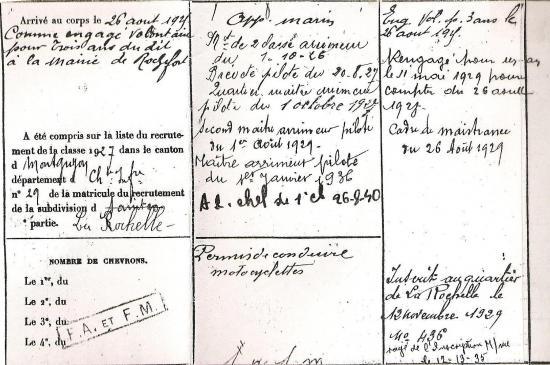 Arrivé au corps le 26 aout 192
Comme engagé volontaire
pour trois ans du dit
à la Mairie de Rochefort
A été compris sur la liste du recrute-
ment de la classe 1927 dans le canton
d Montguyon
département d Ch. Infre
n° 29 de la matricule du recrutement
de la subdivision d Saintes
partie. La Rochelle
NOMBRE DE CHEVRONS.
Le 1er, du
Le 2e, du
Le 3e, du
Le 4e, du
F.A. ET F.M.
App. marin
Mt de 2 classe arrimeur
du 1-10-26
Breveté pilote du 20-6.27
Quartier maître arrimeur
pilote du 1 octobre 1927
Second maitre arrimeur pilote
du 1er Aout 1929
Maître arrimeur pilote
du 1er Janvier 1936
A L. chef de 1e cl 26-8-40
Permis de conduire
motocyclettes
Eng. Vol. p. 3 ans le
26 aout 192
Rengagé pour
le 11 mai 1929 pour
compter du 26 aout
192
Cadre de maistrance
du 26 Août 1929
Inscrit au quartier
de La Rochelle le
12 novembre 1929
No 436
rayé de l'Inscription M/me
le 12-13-35